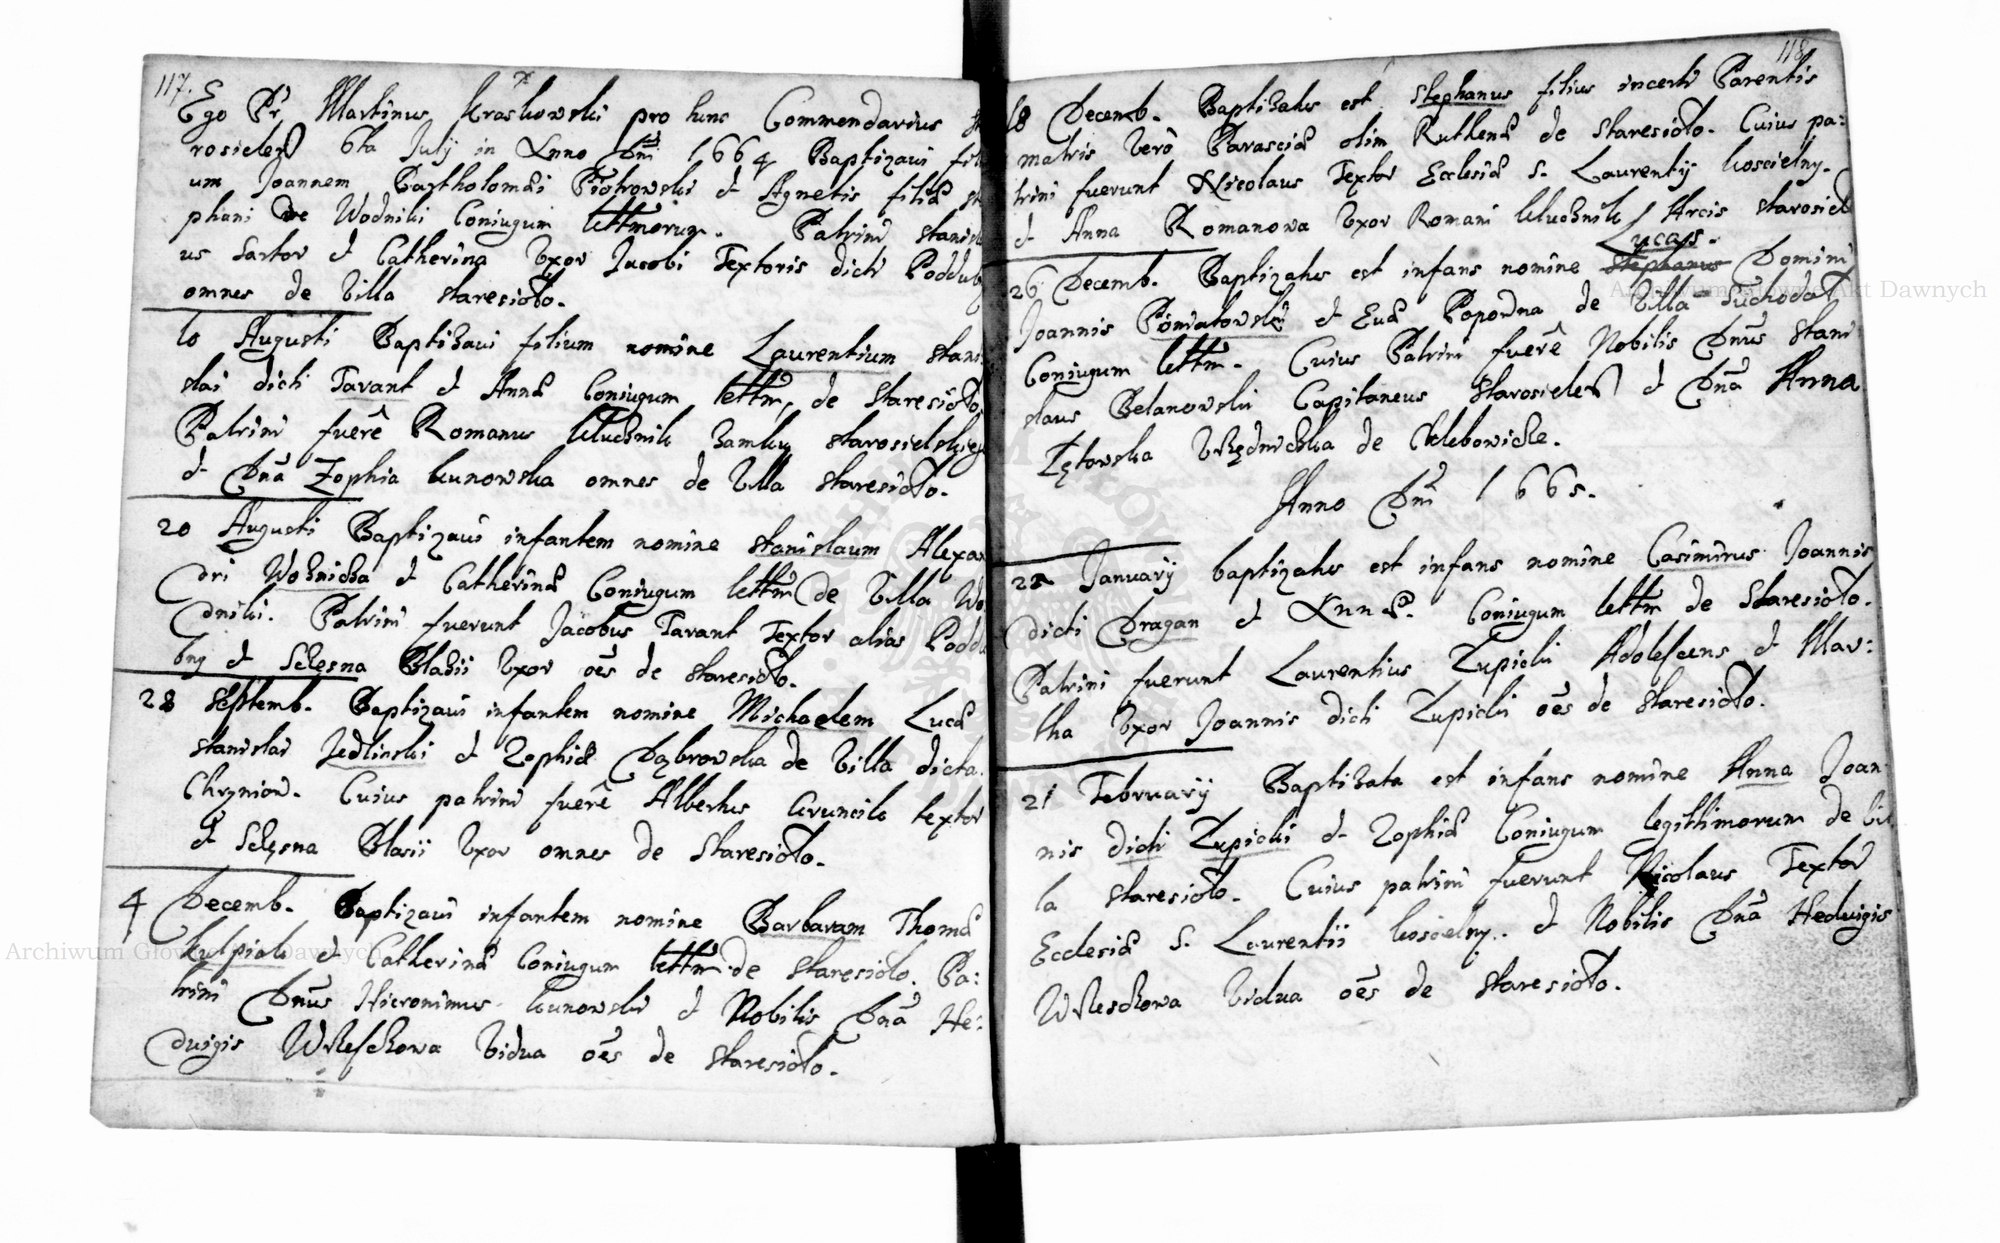 117.
Ego Pr Martinus Kraskowski pro tunc Commendarius St
rosielen 6ta July in Anno Dni 1664 Baptizavi fili
um Joannem Bartholomæi Piotrowski et Agnetis filiæ St
phani de Wodniki Coniugum lettmorum. Patrini Stanisla
us Sartor et Catherina Vxor Jacobi Textoris dicti Poddub
omnes de Villa Staresioło.
10 Augusti Baptizavi filium nomine Laurentium Stani
slai dicti Tarant et Annæ Coniugum lettm, de Staresioło,
Patrini fuerê Romanus Klucznik Zamku Starosielskieg
et Dnã Zophia Kunowska omnes de Villa Staresioło.
20 Augusti Baptizavi infantem nomine Stanislaum Alexan
dri Woznicka et Catherinæ Coniugum lettm de Villa Wo
dniki. Patrini fuerunt Jacobus Tarant Textor alias Poddu
bny et Sczęsna Blasii Vxor oẽs de Staresioło.
28 Septemb. Baptizavi infantem nomine Michaelem Lucæ
Stanislai Jedlinski et Zophiæ Dąbrowska de Villa dicta
Chrynow. Cuius patrini fuerê Albertus textor
et Sczęsna Blasii Vxor omnes de Staresioło.
4 Decemb. Baptizavi infantem nomine Barbaram Thomæ
Kulpiak et Catherinæ Coniugum lettm de Staresioło. Pa:
trini Dnus Hieronimus Kunowski et Nobilis Dnã He:
duigis Vidua oẽs de Staresioło.
118
18 Decemb. Baptizatus est Stephanus filius incerti Parentis
matris verò Parasciæ olim Ruthenæ de Staresioło. Cuius pa:
trini fuerunt Nicolaus Textor Ecclesiæ S. Laurentij Koscielny.
et Anna Romanowa Vxor Romani Klucznik Arcis Starosiel
Lucas.
26 Decemb. Baptizatus est infans nomine Stephanus Domini
Joannis Poniatowski et Euæ Popowna de Villa Suchodoł
Coniugum lettm. Cuius Patrini fuerê Nobilis Dnus Stani
slaus Belanowski Capitaneus Starosielen et Dnã Anna
Zętowska Vrzędniczka de Chlebowicze.
Anno Dni 1665.
22 January baptizatus est infans nomine Casimirus Joannis
dicti Dragan et Annæ. Coniugum lettm de Staresioło.
Patrini fuerunt Laurentius Zupicki Adolescens et Mar:
tha Vxor Joannis dicti Zupicki oẽs de Staresioło.
21 February Baptizata est infans nomine Anna Joan
nis dicti Zupicki et Zophiæ Coniugum legittimorum de Vil
la Staresioło. Cuius patrini fuerunt Nicolaus Textor
Ecclesiæ S. Laurentii Koscielny. et Nobilis Dnã Heduigis
Vidua oẽs de Staresioło.
Archiwum Główne Akt Dawnych
Archiwum Główne Akt Dawnych